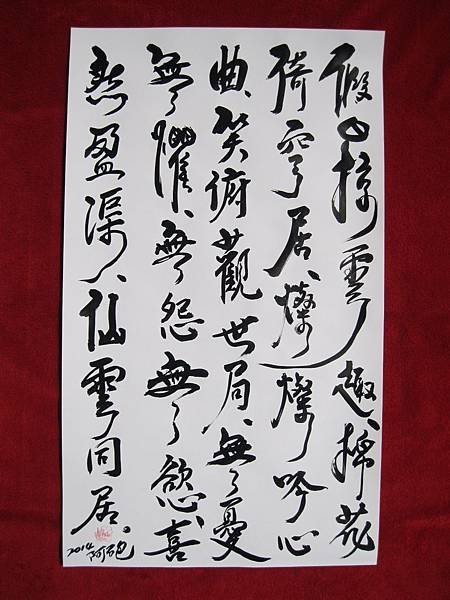 假日掠雲趣、棉花
倚穹居、燦燦吟心
曲、笑俯觀世局、無憂
無懼、無怨無慾、喜
盈渠、仙雲同居。
2014 阿砲